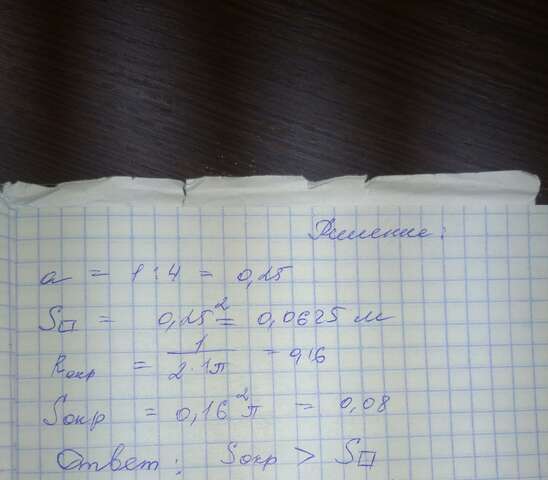 Решение:
a = 1 : 4 = 0,25
S□ = 0,25² = 0,0625 м
Rокр = 1/2·1π = 0,16
Sокр = 0,16²π = 0,08
Ответ: Sокр > S□